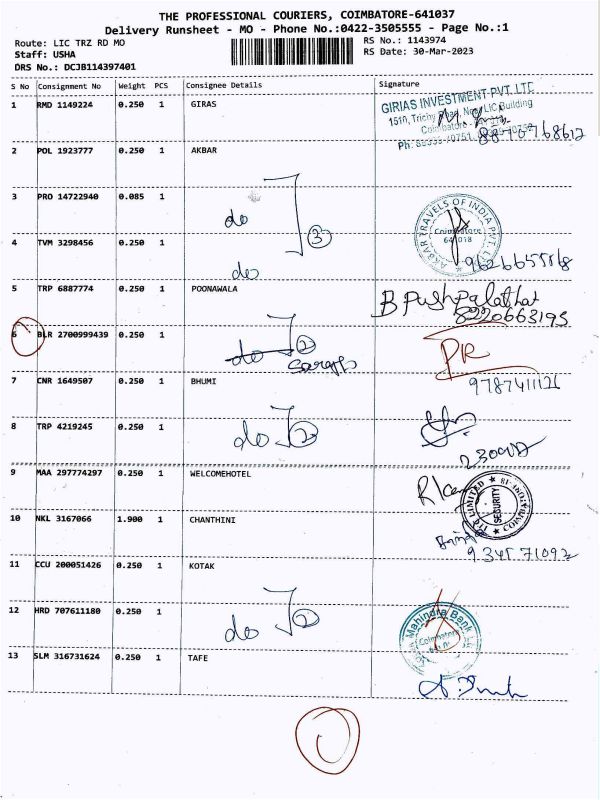 THE PROFESSIONAL COURIERS, COIMBATORE-641037
Delivery Runsheet - MO - Phone No.:0422-3505555 - Page No.:1
Route: LIC TRZ RD MO RS No.: 1143974
Staff: USHA RS Date: 30-Mar-2023
DRS No.: DCJB114397401
S No Consignment No Weight PCS Consignee Details Signature
1 RMD 1149224 0.250 1 GIRAS
GIRIAS INVESTMENT PVT. LTD
1510, Trichy Road, Near LIC Building
Coimbatore
8870768612
2 POL 1923777 0.250 1 AKBAR
3 PRO 14722940 0.085 1
do 3
AKBAR TRAVELS OF INDIA PVT. LTD
Coimbatore
641018
4 TVM 3298456 0.250 1
do
5 TRP 6887774 0.250 1 POONAWALA
B Pushpalatha
8220663195
6 BLR 2700999439 0.250 1
do 2
PR
9787411126
7 CNR 1649507 0.250 1 BHUMI
8 TRP 4219245 0.250 1
do 2
9 MAA 297774297 0.250 1 WELCOMEHOTEL
SECURITY
10 NKL 3167066 1.900 1 CHANTHINI
9345 71092
11 CCU 200051426 0.250 1 KOTAK
12 HRD 707611180 0.250 1
do 2
Mahindra Bank
Coimbatore
13 SLM 316731624 0.250 1 TAFE